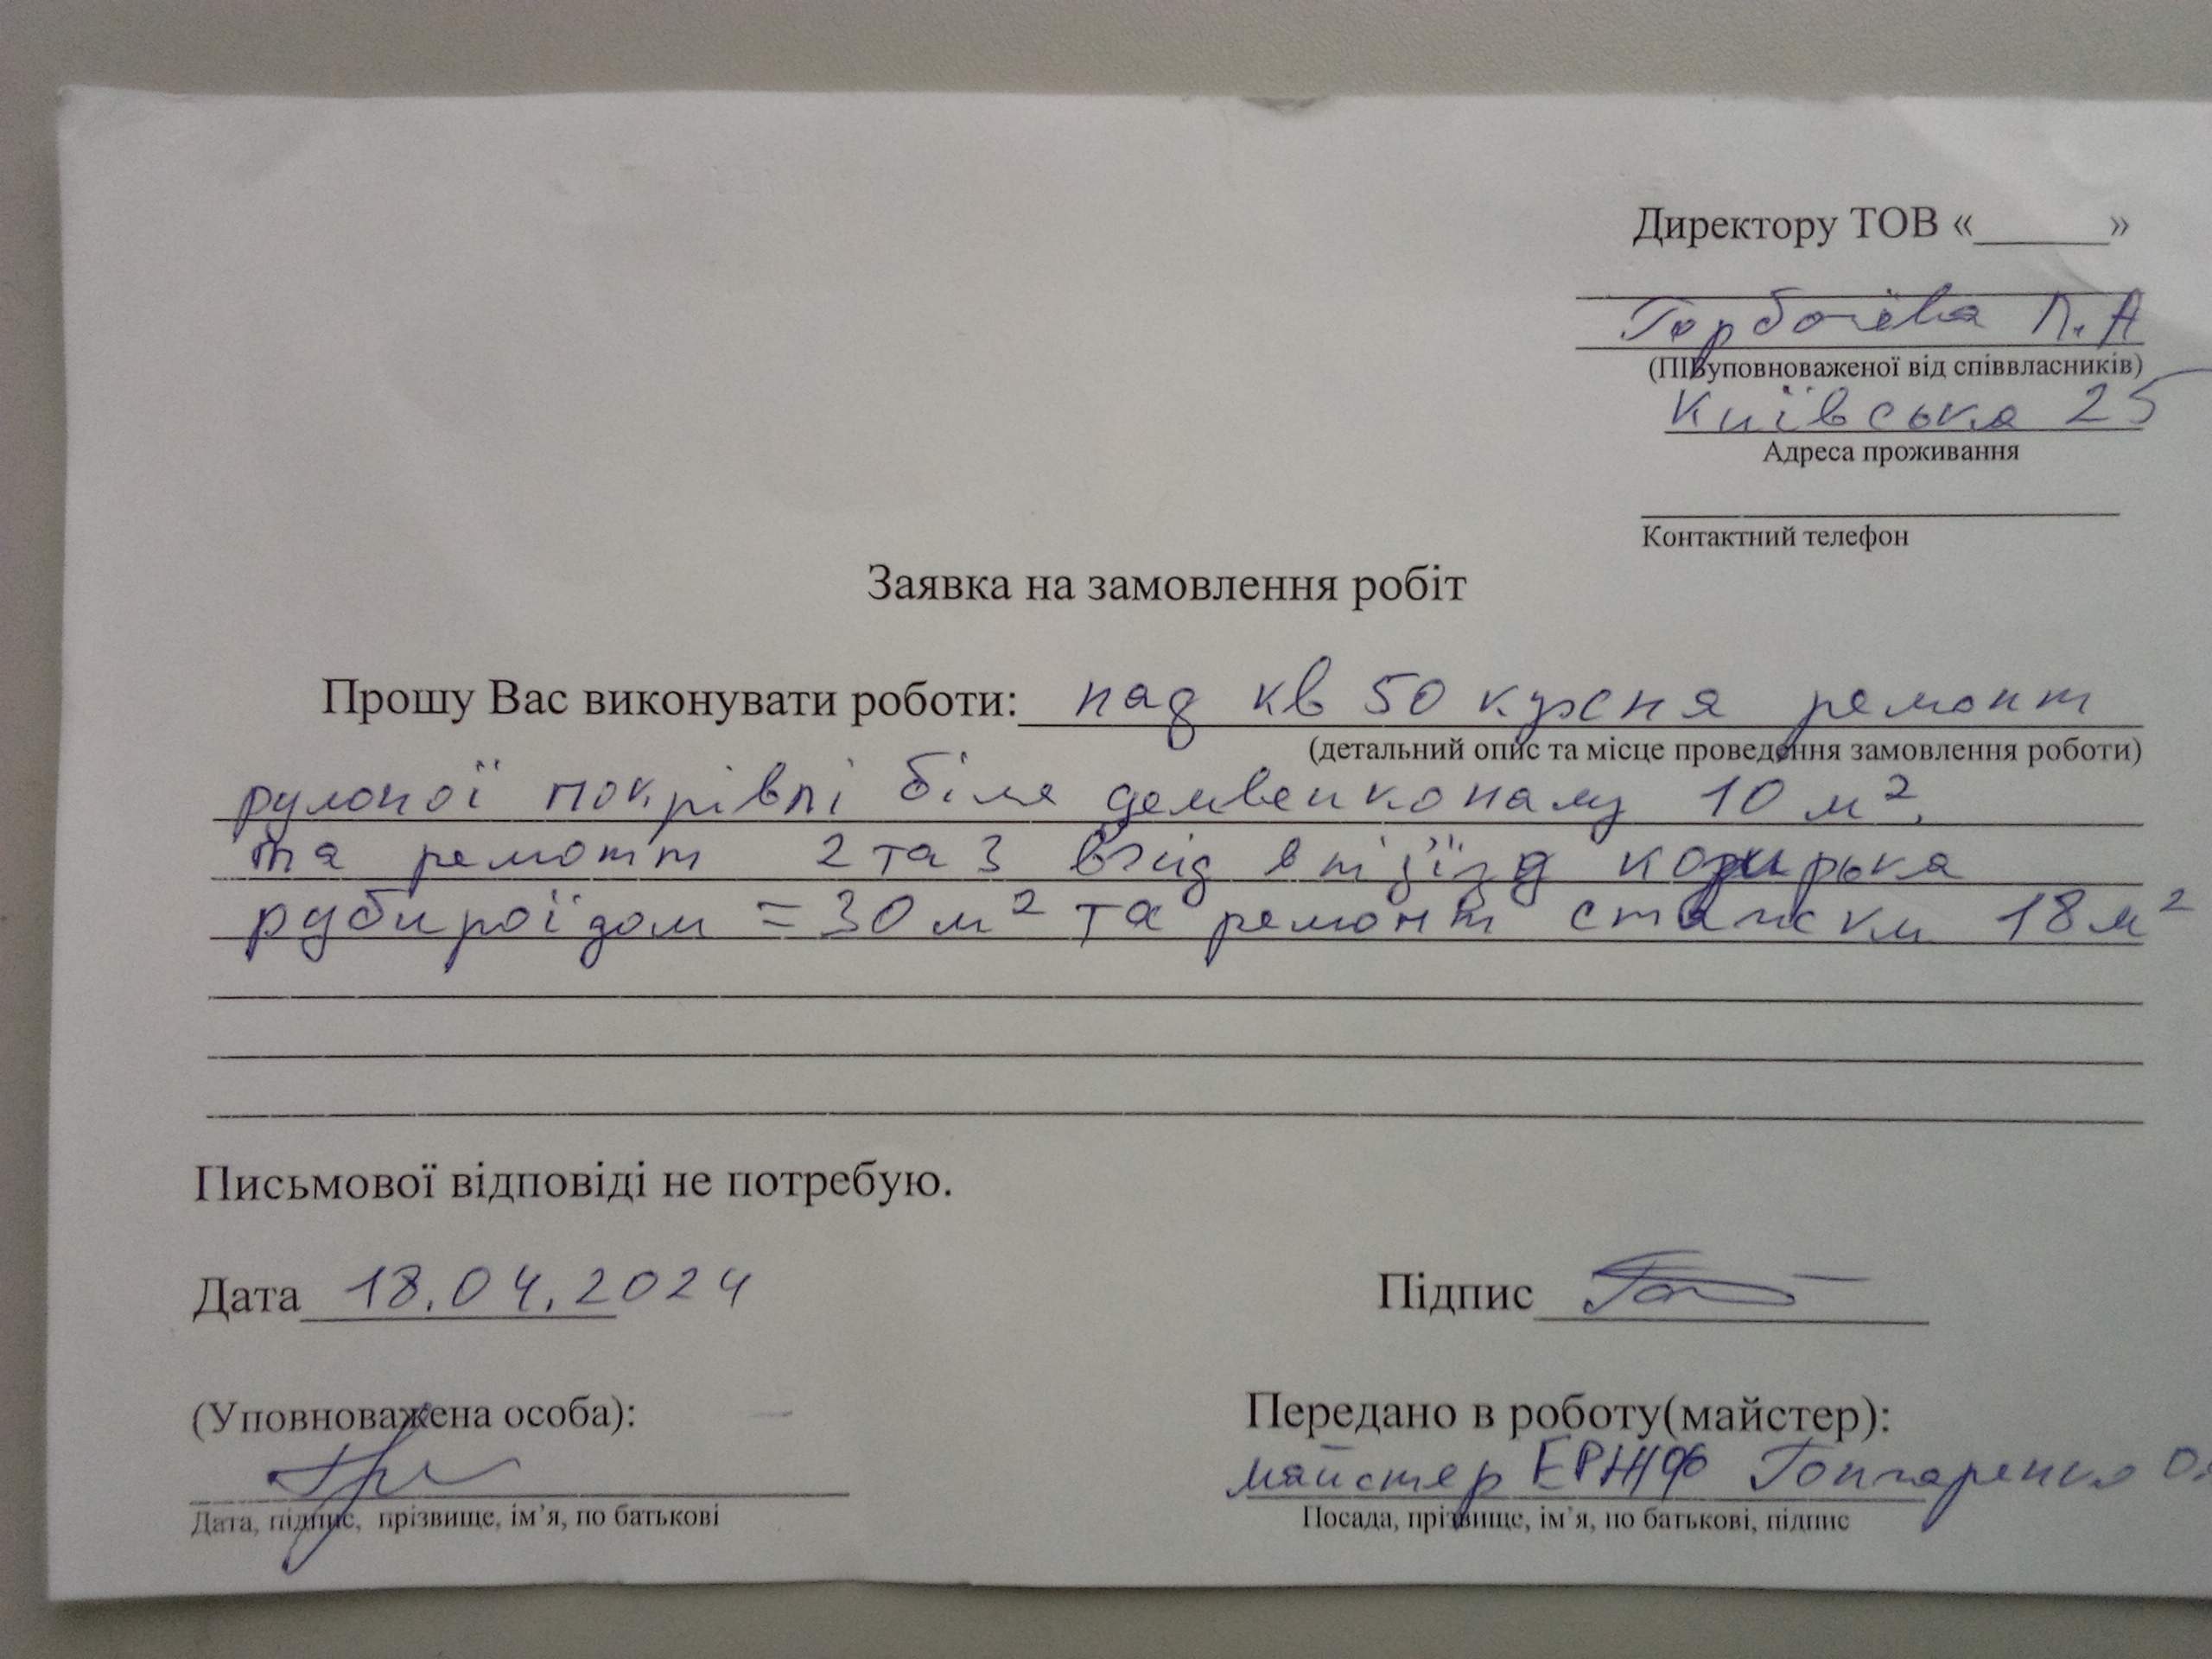 Директору ТОВ «______»
Горбачёва Л.А
(ПІВуповноваженої від співвласників)
Київська 25
Адреса проживання
Контактний телефон
Заявка на замовлення робіт
Прошу Вас виконувати роботи: над кв 50 кухня ремонт
(детальний опис та місце проведення замовлення роботи)
рулоної покрівлі біля 10 м².
та ремонт 2 та 3 вхід в під'їзд козирька
рубироїдом = 30 м² та ремонт стяжки 18 м²
Письмової відповіді не потребую.
Дата 18.04.2024
Підпис
(Уповноважена особа):
Передано в роботу(майстер):
майстер ЕРЖФ Гончаренко
Дата, підпис, прізвище, ім’я, по батькові
Посада, прізвище, ім’я, по батькові, підпис